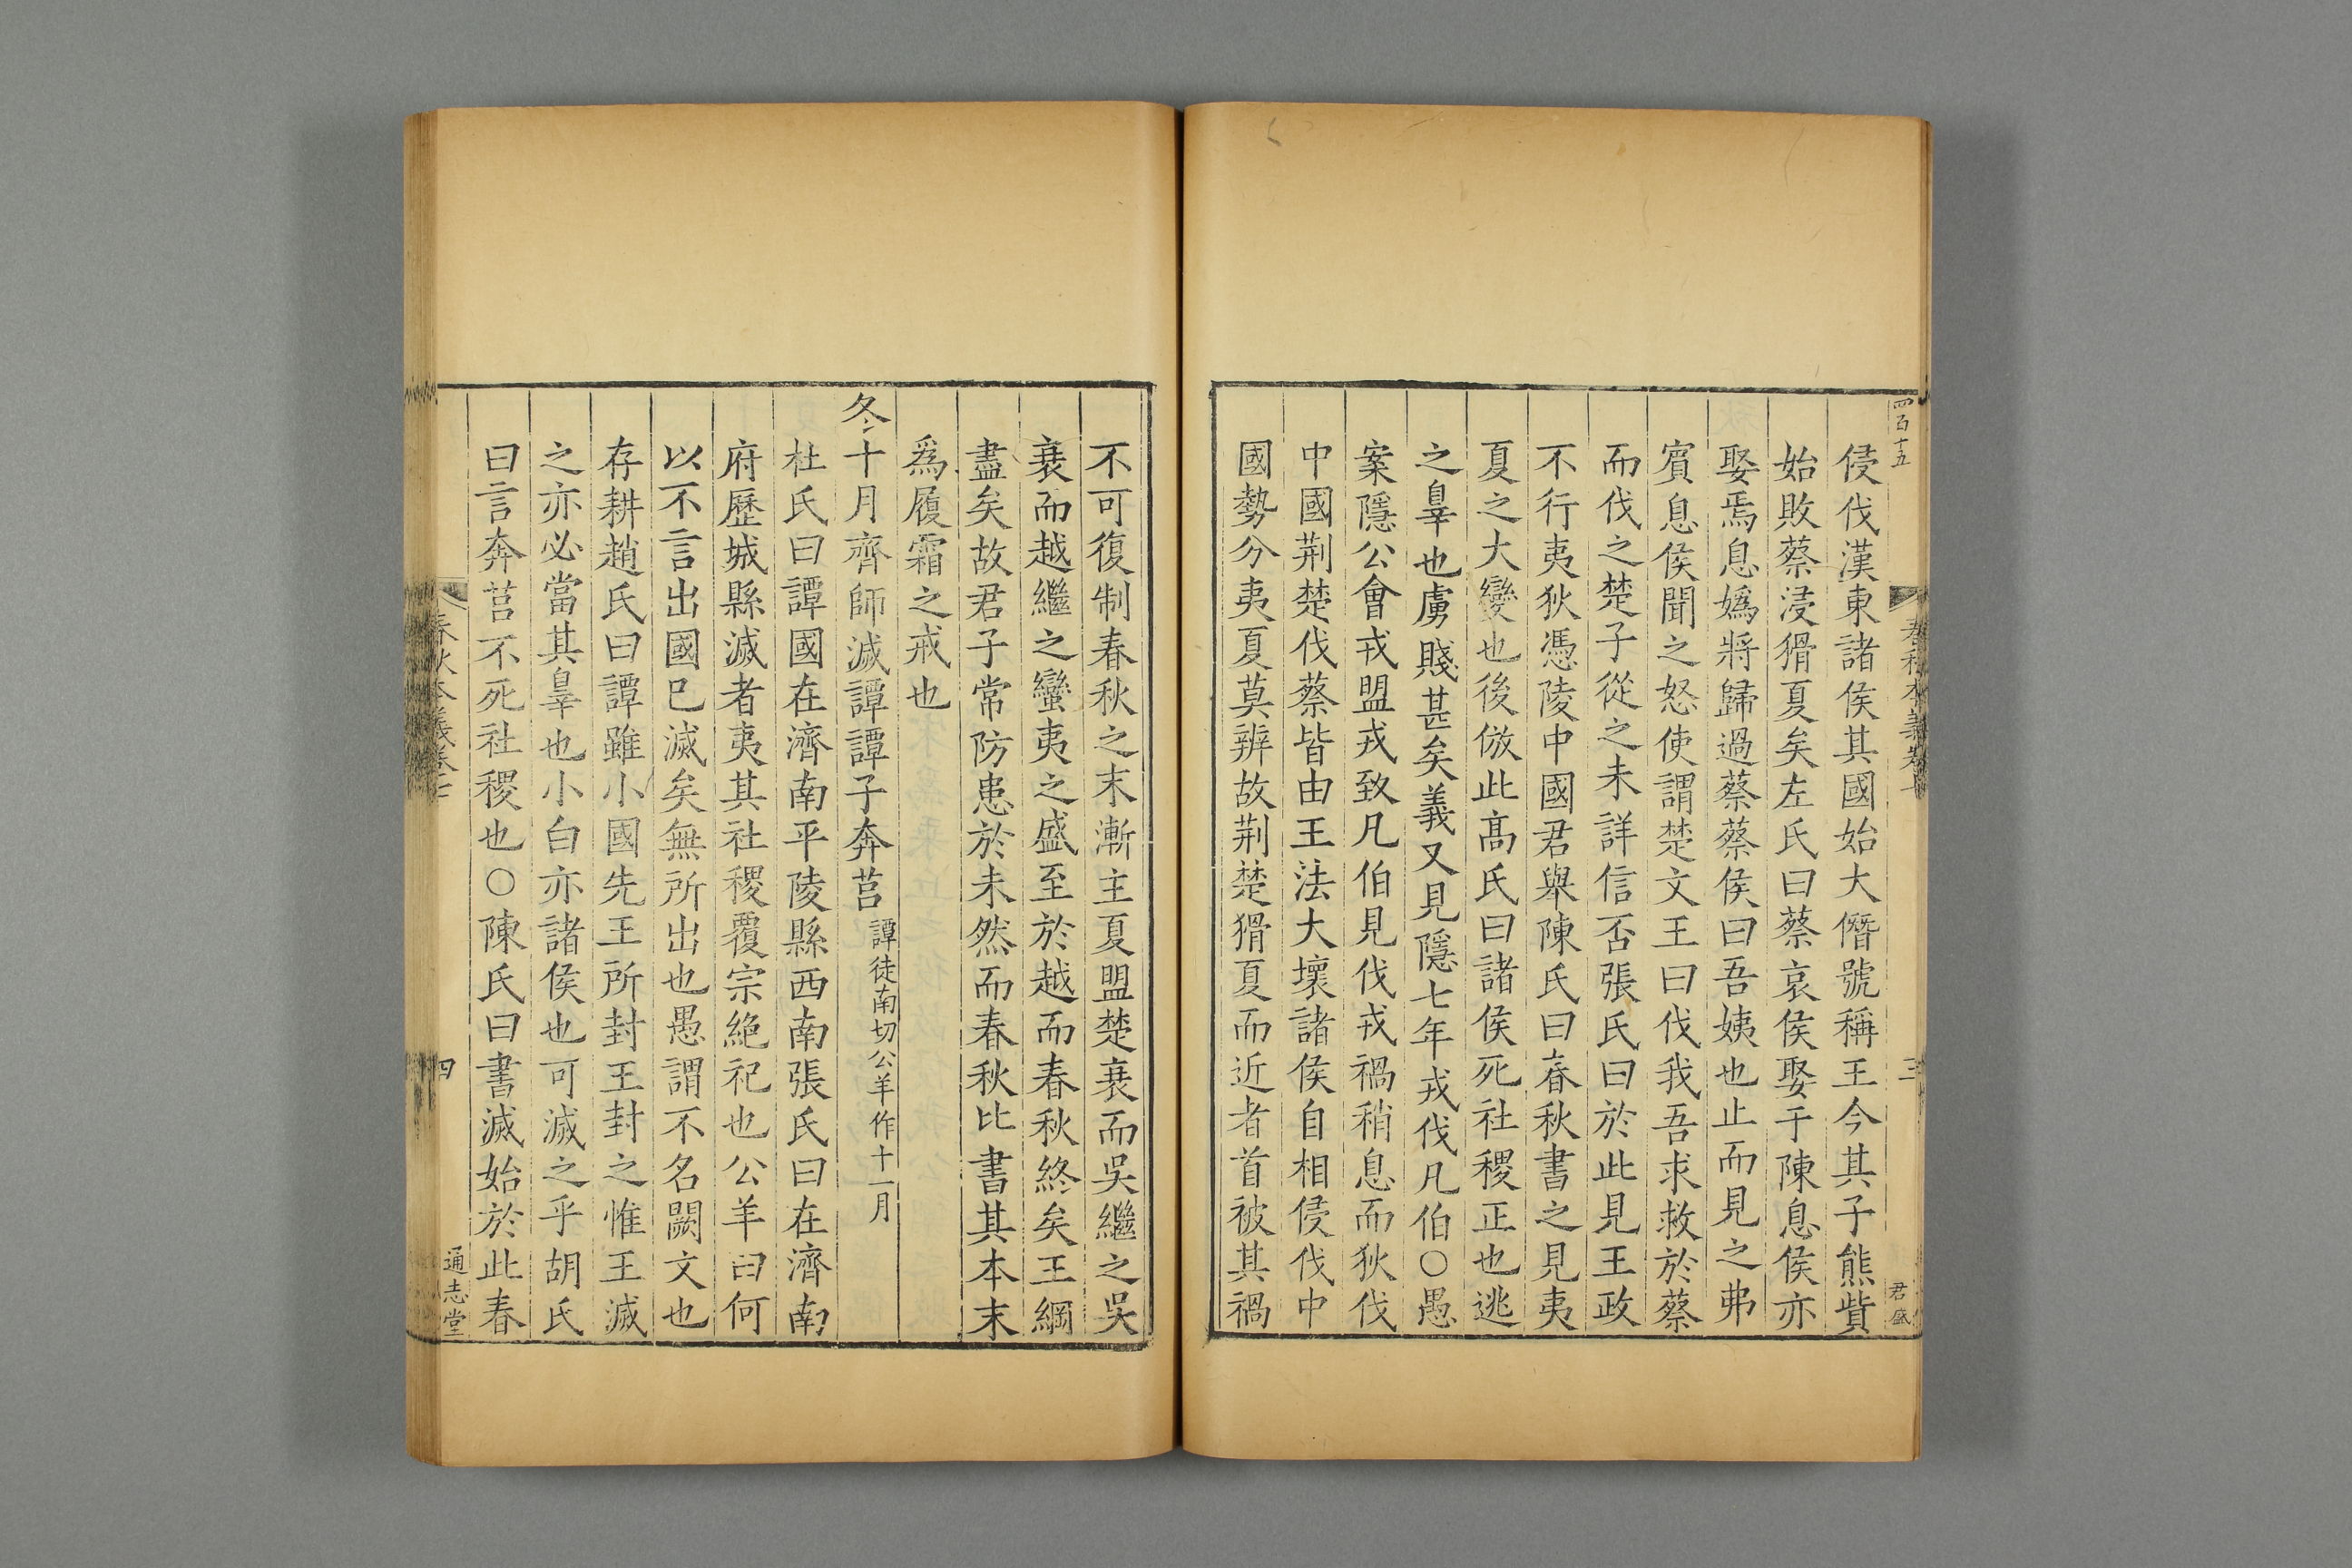 四百十五
春秋本義卷七
三
君盛
侵伐漢東諸侯其國始大僭號稱王今其子熊貲
始敗蔡浸猾夏矣左氏曰蔡哀侯娶于陳息侯亦
娶焉息媯將歸過蔡蔡侯曰吾姨也止而見之弗
賓息侯聞之怒使謂楚文王曰伐我吾求救於蔡
而伐之楚子從之未詳信否張氏曰於此見王政
不行夷狄憑陵中國君舉陳氏曰春秋書之見夷
夏之大變也後倣此髙氏曰諸侯死社稷正也逃
之辠也虜賤甚矣義又見隱七年戎伐凡伯○愚
案隱公會戎盟戎致凡伯見伐戎禍稍息而狄伐
中國荆楚伐蔡皆由王法大壞諸侯自相侵伐中
國勢分夷夏莫辨故荆楚猾夏而近者首被其禍
不可復制春秋之末漸主夏盟楚衰而吳繼之吳
衰而越繼之蠻夷之盛至於越而春秋終矣王綱
盡矣故君子常防患於未然而春秋比書其本末
爲履霜之戒也
冬十月齊師滅譚譚子奔莒譚徒南切公羊作十一月
杜氏曰譚國在濟南平陵縣西南張氏曰在濟南
府歷城縣滅者夷其社稷覆宗絶祀也公羊曰何
以不言出國已滅矣無所出也愚謂不名闕文也
存耕趙氏曰譚雖小國先王所封王封之惟王滅
之亦必當其辠也小白亦諸侯也可滅之乎胡氏
曰言奔莒不死社稷也○陳氏曰書滅始於此春
春秋本義卷七
四
通志堂